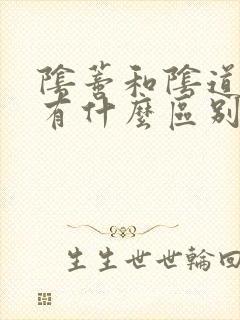 陰蒂和陰道
有什麼區別
生生世世輪回